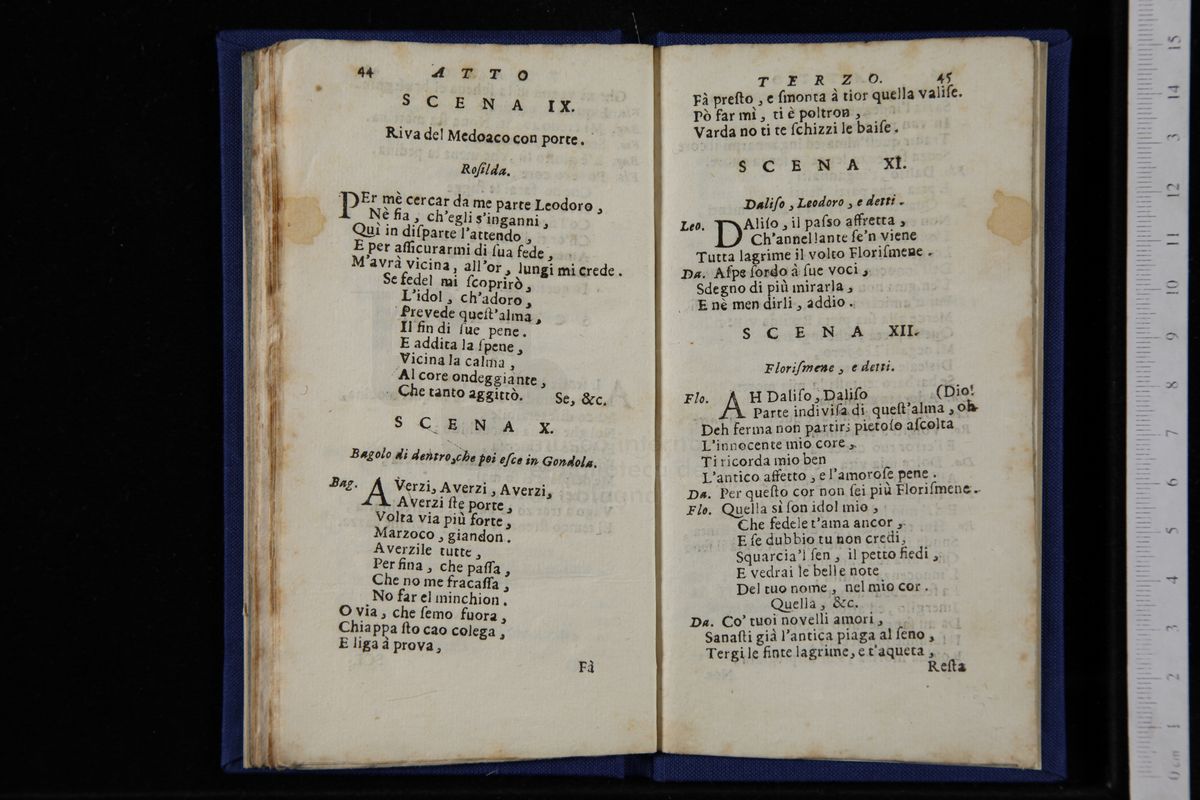 44 ATTO
SCENA IX.
Riva del Medoaco con porte.
Roſilda.
PEr mè cercar da me parte Leodoro,
Nè fia, ch'egli s'inganni,
Quì in diſparte l'attendo,
E per aſſicurarmi di ſua fede,
M'avrà vicina, all'or, lungi mi crede.
Se fedel mi ſcoprirò,
L'idol, ch'adoro,
Prevede queſt'alma,
Il fin di ſue pene.
E addita la ſpene,
Vicina la calma,
Al core ondeggiante,
Che tanto aggittò. Se, &c.
SCENA X.
Bagolo di dentro, che poi eſce in Gondola.
Bag. AVerzi, Averzi, Averzi,
Averzi ſte porte,
Volta via più forte,
Marzoco, giandon.
Averzile tutte,
Per fina, che paſſa,
Che no me fracaſſa,
No far el minchion.
O via, che ſemo fuora,
Chiappa ſto cao colega,
E liga à prova,
Fà
TERZO. 45
Fà preſto, e ſmonta à tior quella valiſe.
Pò far mì, ti è poltron,
Varda no ti te ſchizzi le baiſe.
SCENA XI.
Daliſo, Leodoro, e detti.
Leo. DAliſo, il paſso affretta,
Ch'annellante ſe'n viene
Tutta lagrime il volto Floriſmene.
Da. Aſpe ſordo à ſue voci,
Sdegno di più mirarla,
E nè men dirli, addio.
SCENA XII.
Floriſmene, e detti.
Flo. AH Daliſo, Daliſo (Dio!
Parte indiviſa di queſt'alma, oh
Deh ferma non partir; pietoſo aſcolta
L'innocente mio core,
Ti ricorda mio ben
L'antico affetto, e l'amoroſe pene.
Da. Per queſto cor non ſei più Floriſmene.
Flo. Quella sì ſon idol mio,
Che fedele t'ama ancor,
E ſe dubbio tu non credi,
Squarcia'l ſen, il petto fiedi,
E vedrai le belle note
Del tuo nome, nel mio cor.
Quella, &c.
Da. Co' tuoi novelli amori,
Sanaſti già l'antica piaga al ſeno,
Tergi le finte lagrime, e t'aqueta,
Reſta
0 cm 1 2 3 4 5 6 7 8 9 10 11 12 13 14 15